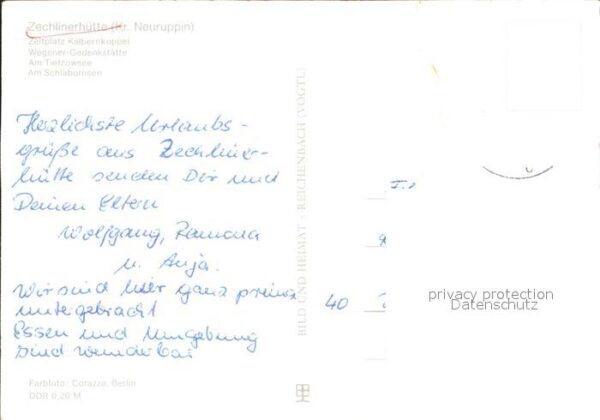 Zechlinerhütte (Kr. Neuruppin)
Zeltplatz Kälbernkoppel
Wegener-Gedenkstätte
Am Tietzowsee
Am Schlabornsee
Herzlichste Urlaubs-
grüße aus Zechliner-
hütte senden Dir und
Deinen Eltern
Wolfgang, Ramona
u. Anja.
Wir sind hier ganz prima
untergebracht
Essen und Umgebung
sind wunderbar
Farbfoto: Corazza, Berlin
DDR 0,20 M
BILD UND HEIMAT · REICHENBACH (VOGTL)
40
privacy protection
Datenschutz